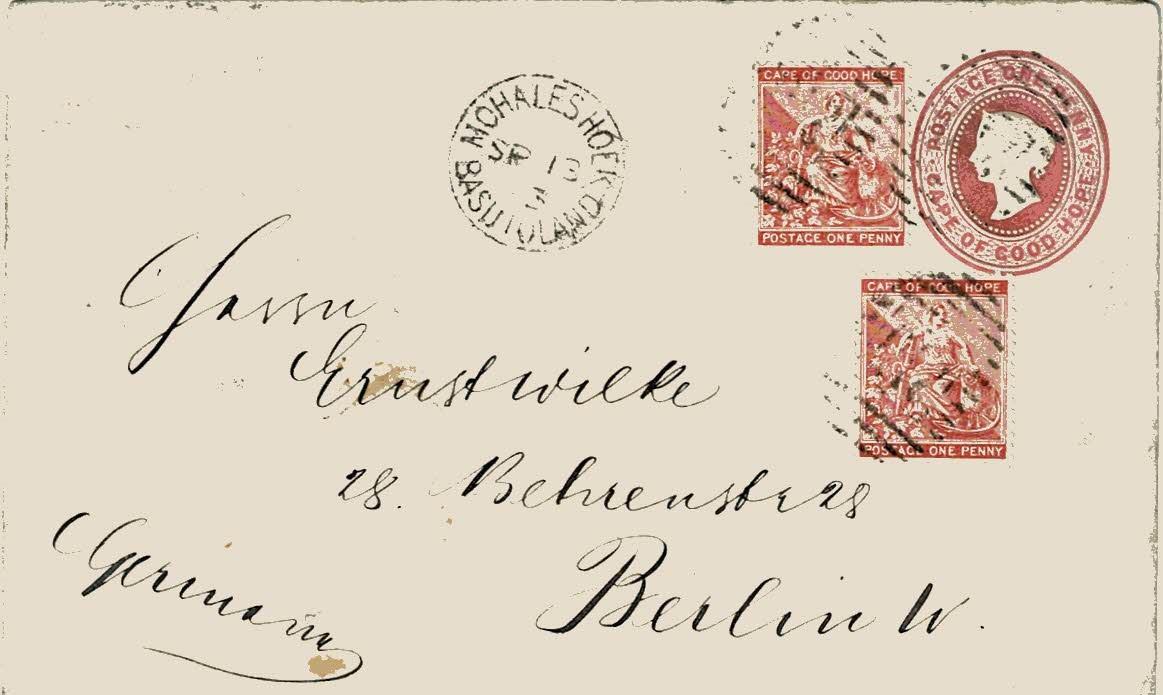 MOHALESHOEK
SP 13
BASUTOLAND
CAPE OF GOOD HOPE
POSTAGE ONE PENNY
POSTAGE ONE PENNY
CAPE OF GOOD HOPE
CAPE OF GOOD HOPE
POSTAGE ONE PENNY
Herrn
Ernst Wilke
28. Behrenstr 28
Berlin W.
Germany